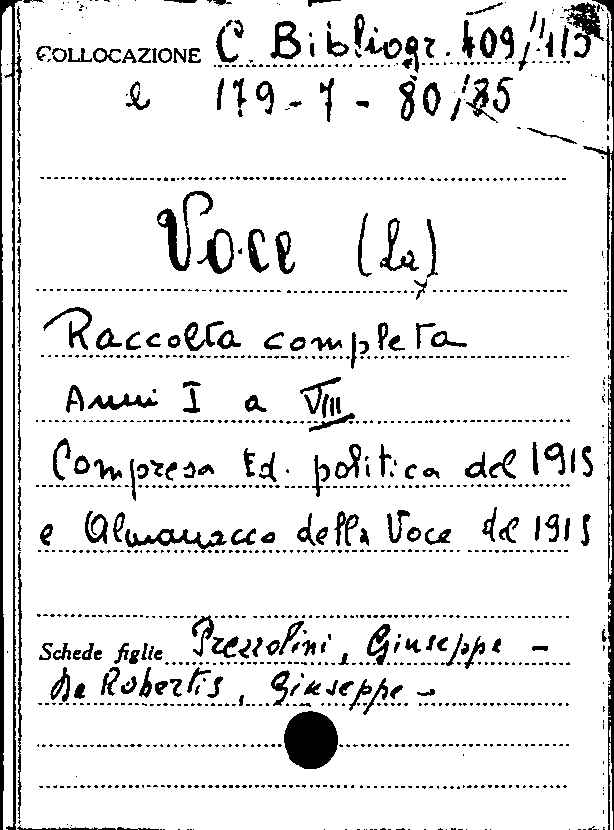 COLLOCAZIONE C. Bibliogr. 409/113
e 179-7-80/85
Voce (La)
Raccolta completa
Anni I a VIII
Compresa Ed. politica del 1915
e Almanacco della Voce del 1915
Schede figlie Prezzolini, Giuseppe -
De Robertis, Giuseppe -